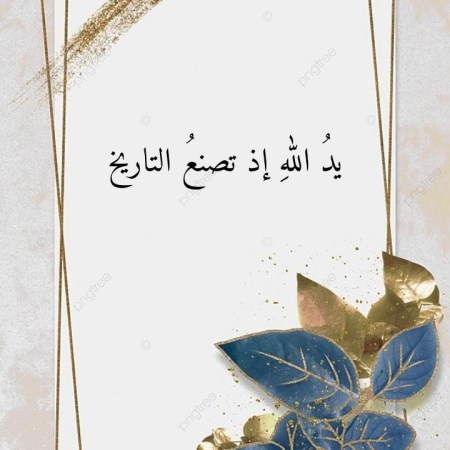 يدُ اللهِ إذ تصنعُ التاريخ
pngtree
pngtree
pngtree
pngtree